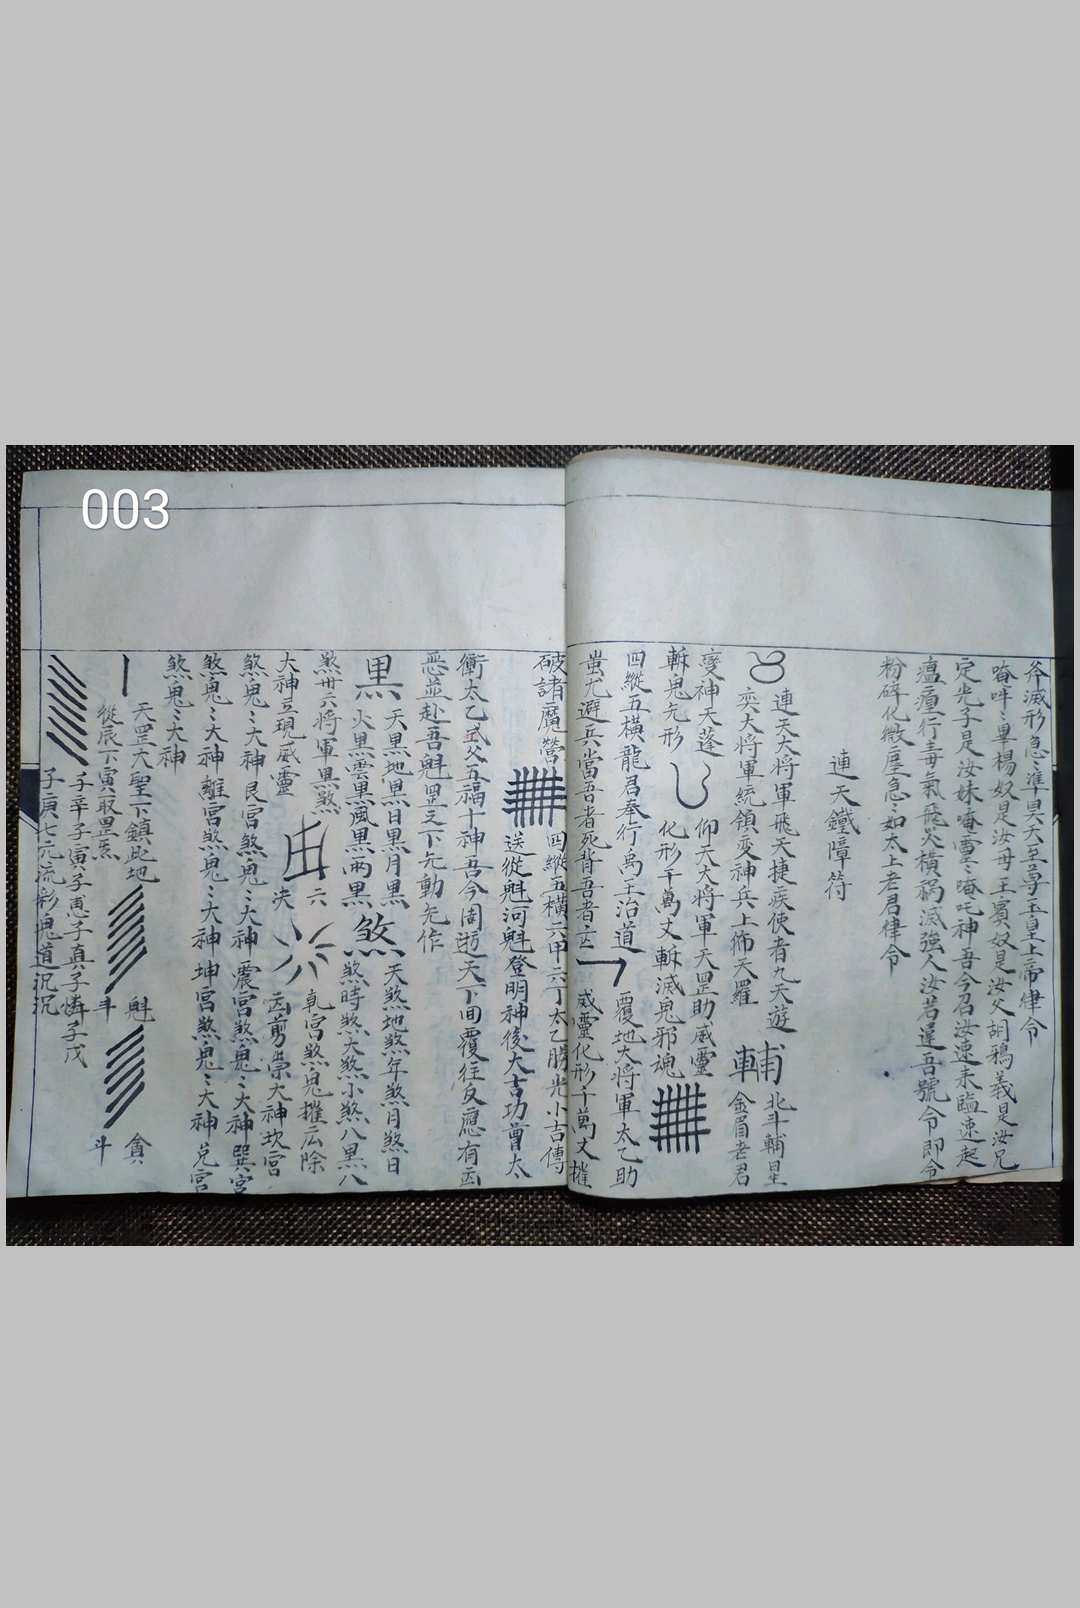 003
斧滅形急〻準昊天至尊玉皇上帝律令
唵吽〻畢楊奴是汝母王賓奴是汝父胡鴉義是汝兄
定光子是汝妹唵靈〻唵吒神吾今召汝速来臨速起
瘟㾮行毒氣飛災橫禍滅強人汝若違吾號令即令
粉碎化微塵急〻如太上老君律令
連天鐵障符
連天大將軍飛天捷疾使者九天遊
奕大將軍統領变神兵上佈天羅
輔
北斗輔星
金眉老君
變神天蓬
斬鬼无形
仰天大將軍天罡助威靈
化形千萬丈斬滅鬼邪魂
四縱五橫龍君奉行禹王治道
蚩尤避兵當吾者死背吾者亡
覆地大將軍太乙助
威靈化形千萬丈摧
破諸魔營
四縱五橫六甲六丁太乙勝光小吉傳
送從魁河魁登明神後大吉功曹太
衝太乙式父五福十神吾今周遊天下回覆往反應有凶
惡並赴吾魁罡之下无動无作
黑
天黑地黑日黑月黑
火黑雲黑風黑雨黑
煞
天煞地煞年煞月煞日
煞時煞大煞小煞八黑八
煞卅六將軍黑煞
大神立現威靈
六
夬
乾宮煞鬼摧広除
凶剪祟大神坎宮
煞鬼〻大神艮宮煞鬼〻大神震宮煞鬼〻大神巽宮
煞鬼〻大神離宮煞鬼〻大神坤宮煞鬼〻大神兌宮
煞鬼〻大神
天罡大聖下鎮此地
從辰下寅取罡炁
魁
斗
貪
斗
子辛子寅子恵子真子憐子戊
子庚七元流彩鬼道沉沉